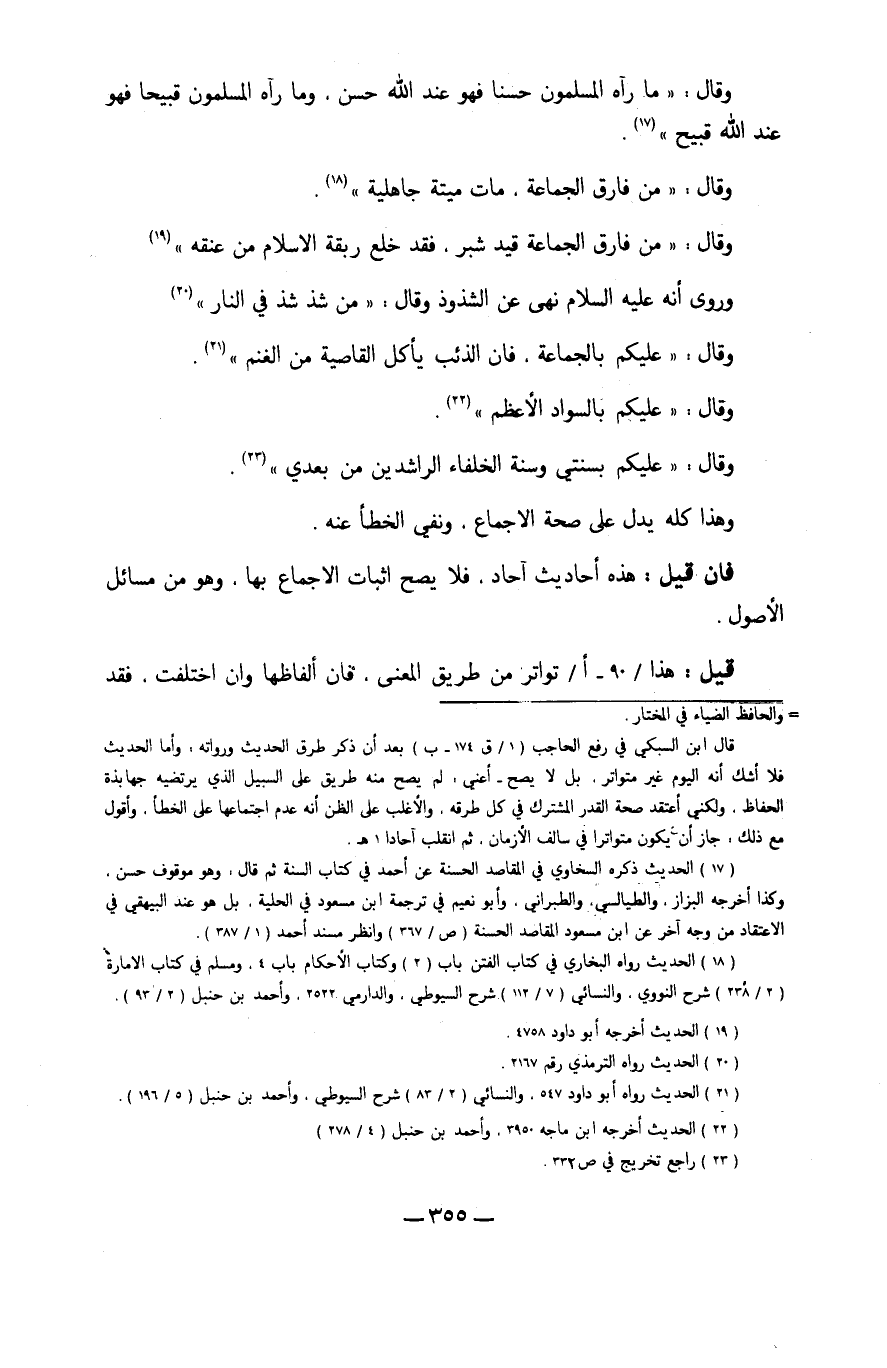 وقال : « ما رآه المسلمون حسنا فهو عند الله حسن ، وما رآه المسلمون قبيحا فهو
عند الله قبيح »(١٧) .
وقال : « من فارق الجماعة ، مات ميتة جاهلية »(١٨) .
وقال : « من فارق الجماعة قيد شبر ، فقد خلع ربقة الاسلام من عنقه »(١٩)
وروى أنه عليه السلام نهى عن الشذوذ وقال : « من شذ شذ في النار »(٢٠)
وقال : « عليكم بالجماعة ، فان الذئب يأكل القاصية من الغنم »(٢١) .
وقال : « عليكم بالسواد الأعظم »(٢٢) .
وقال : « عليكم بسنتي وسنة الخلفاء الراشدين من بعدي »(٢٣) .
وهذا كله يدل على صحة الاجماع ، ونفي الخطأ عنه .
فان قيل : هذه أحاديث آحاد ، فلا يصح اثبات الاجماع بها ، وهو من مسائل
الأصول .
قيل : هذا / ٩٠ ـ أ / تواتر من طريق المعنى ، فان ألفاظها وان اختلفت ، فقد
= والحافظ الضياء في المختار .
قال ابن السبكي في رفع الحاجب ( ١ / ق ١٧٤ ـ ب ) بعد أن ذكر طرق الحديث ورواته : وأما الحديث
فلا أشك أنه اليوم غير متواتر ، بل لا يصح ـ أعني : لم يصح منه طريق على السبيل الذي يرتضيه جهابذة
الحفاظ ، ولكني أعتقد صحة القدر المشترك في كل طرقه ، والأغلب على الظن أنه عدم اجتماعها على الخطأ ، وأقول
مع ذلك : جاز أن يكون متواترا في سالف الأزمان ، ثم انقلب آحادا ١ هـ .
( ١٧ ) الحديث ذكره السخاوي في المقاصد الحسنة عن أحمد في كتاب السنة ثم قال : وهو موقوف حسن ،
وكذا أخرجه البزار ، والطيالسي ، والطبراني ، وأبو نعيم في ترجمة ابن مسعود في الحلية ، بل هو عند البيهقي في
الاعتقاد من وجه آخر عن ابن مسعود المقاصد الحسنة ( ص / ٣٦٧ ) وانظر مسند أحمد ( ١ / ٣٨٧ ) .
( ١٨ ) الحديث رواه البخاري في كتاب الفتن باب ( ٢ ) وكتاب الأحكام باب ٤ ، ومسلم في كتاب الامارة
( ٢ / ٢٣٨ ) شرح النووي ، والنسائي ( ٧ / ١١٢ ) شرح السيوطي ، والدارمي ٢٥٢٢ ، وأحمد بن حنبل ( ٢ / ٩٣ ) .
( ١٩ ) الحديث أخرجه أبو داود ٤٧٥٨ .
( ٢٠ ) الحديث رواه الترمذي رقم ٢١٦٧ .
( ٢١ ) الحديث رواه أبو داود ٥٤٧ ، والنسائي ( ٢ / ٨٣ ) شرح السيوطي ، وأحمد بن حنبل ( ٥ / ١٩٦ ) .
( ٢٢ ) الحديث أخرجه ابن ماجه ٣٩٥٠ ، وأحمد بن حنبل ( ٤ / ٢٧٨ )
( ٢٣ ) راجع تخريج في ص ٣٣٢ .
— ٣٥٥ —